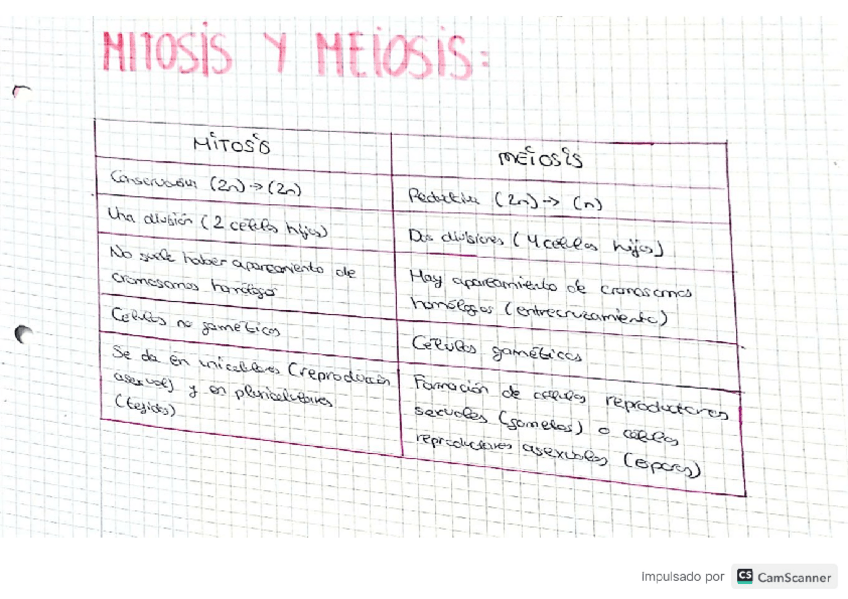 MITOSIS Y MEIOSIS:
MITOSIS
Conservación (2n) → (2n)
Una división (2 células hijas)
No suele haber apareamiento de
cromosomas homólogos
Células no gaméticas
Se da en unicelulares (reproducción
asexual) y en pluricelulares
(tejidos)
MEIOSIS
Reductiva (2n) → (n)
Dos divisiones (4 células hijas)
Hay apareamiento de cromosomas
homólogos (entrecruzamiento)
Células gaméticas
Formación de células reproductoras
sexuales (gametos) o células
reproductoras asexuales (esporas)
Impulsado por CS CamScanner